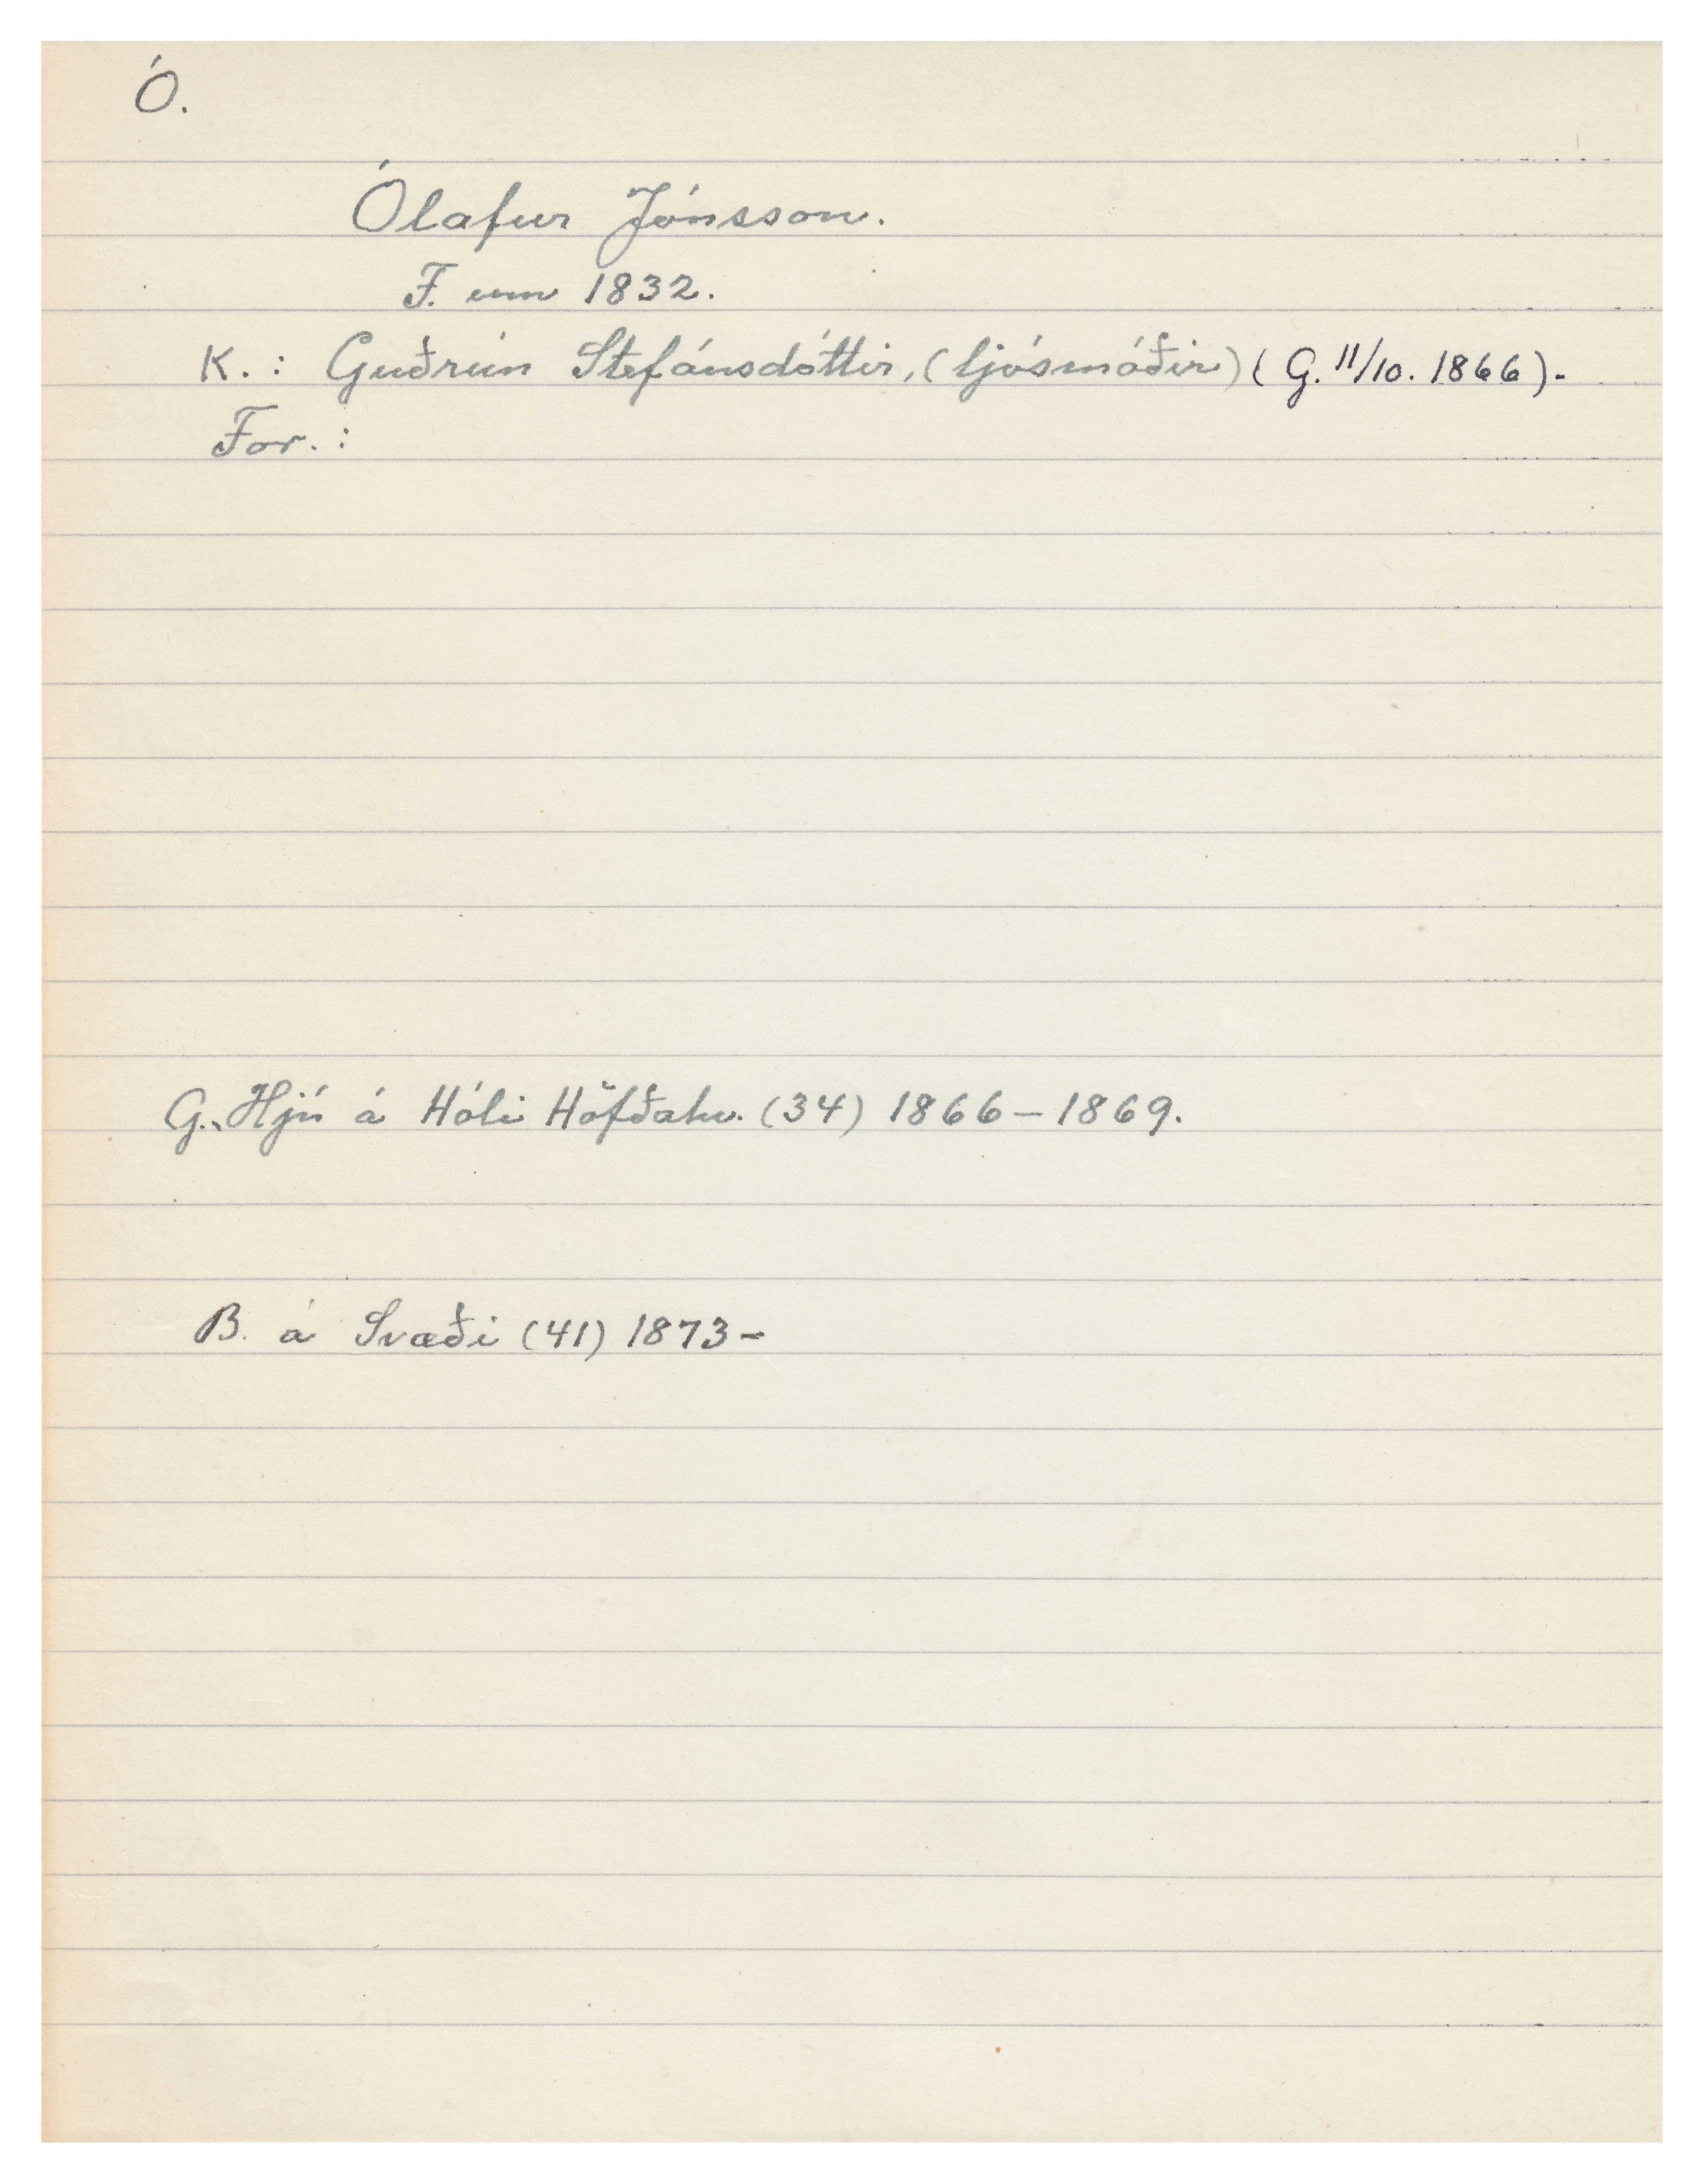 Ó.
Ólafur Jónsson.
F. um 1832.
K. : Guðrún Stefánsdóttir, (ljósmóðir) (G. 11/10. 1866).
For. :
G. Hjú á Hóli Höfðahv. (34) 1866 – 1869.
B. á Svæði (41) 1873 –